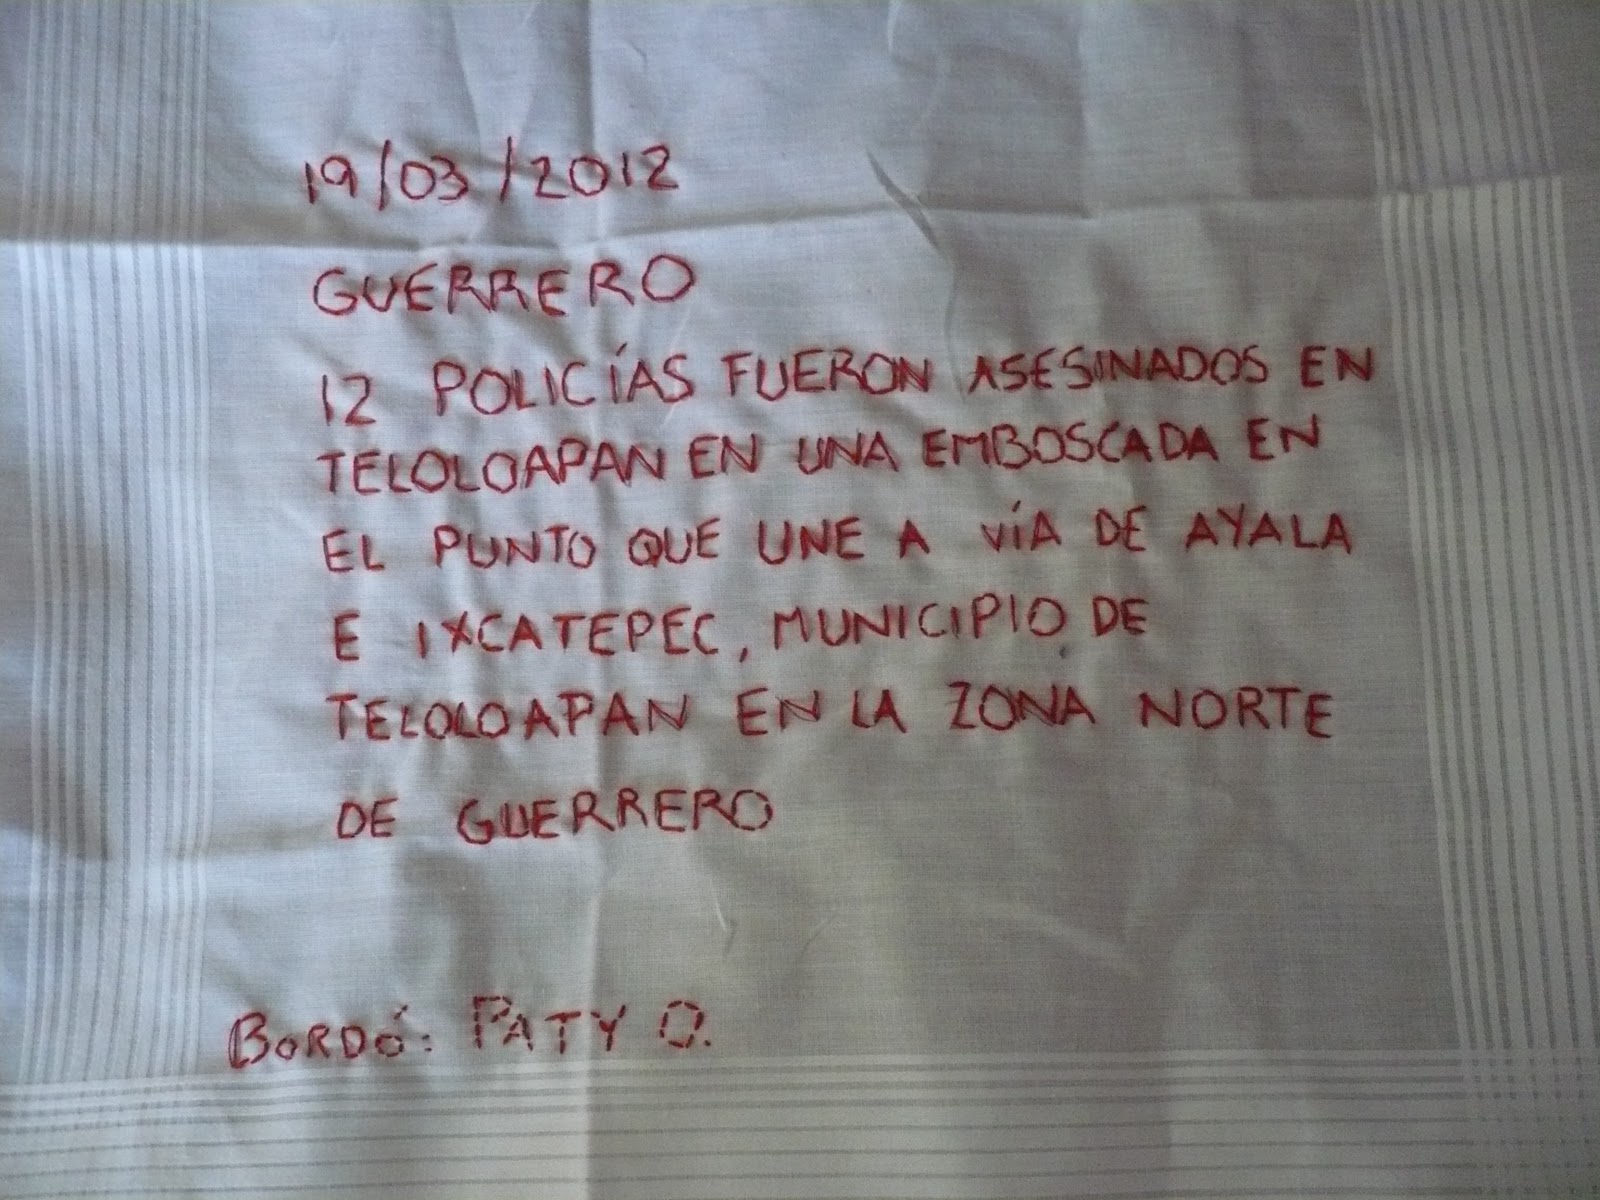 19/03/2012
GUERRERO
12 POLICÍAS FUERON ASESINADOS EN
TELOLOAPAN EN UNA EMBOSCADA EN
EL PUNTO QUE UNE A VÍA DE AYALA
E IXCATEPEC, MUNICIPIO DE
TELOLOAPAN EN LA ZONA NORTE
DE GUERRERO
BORDÓ: PATY O.